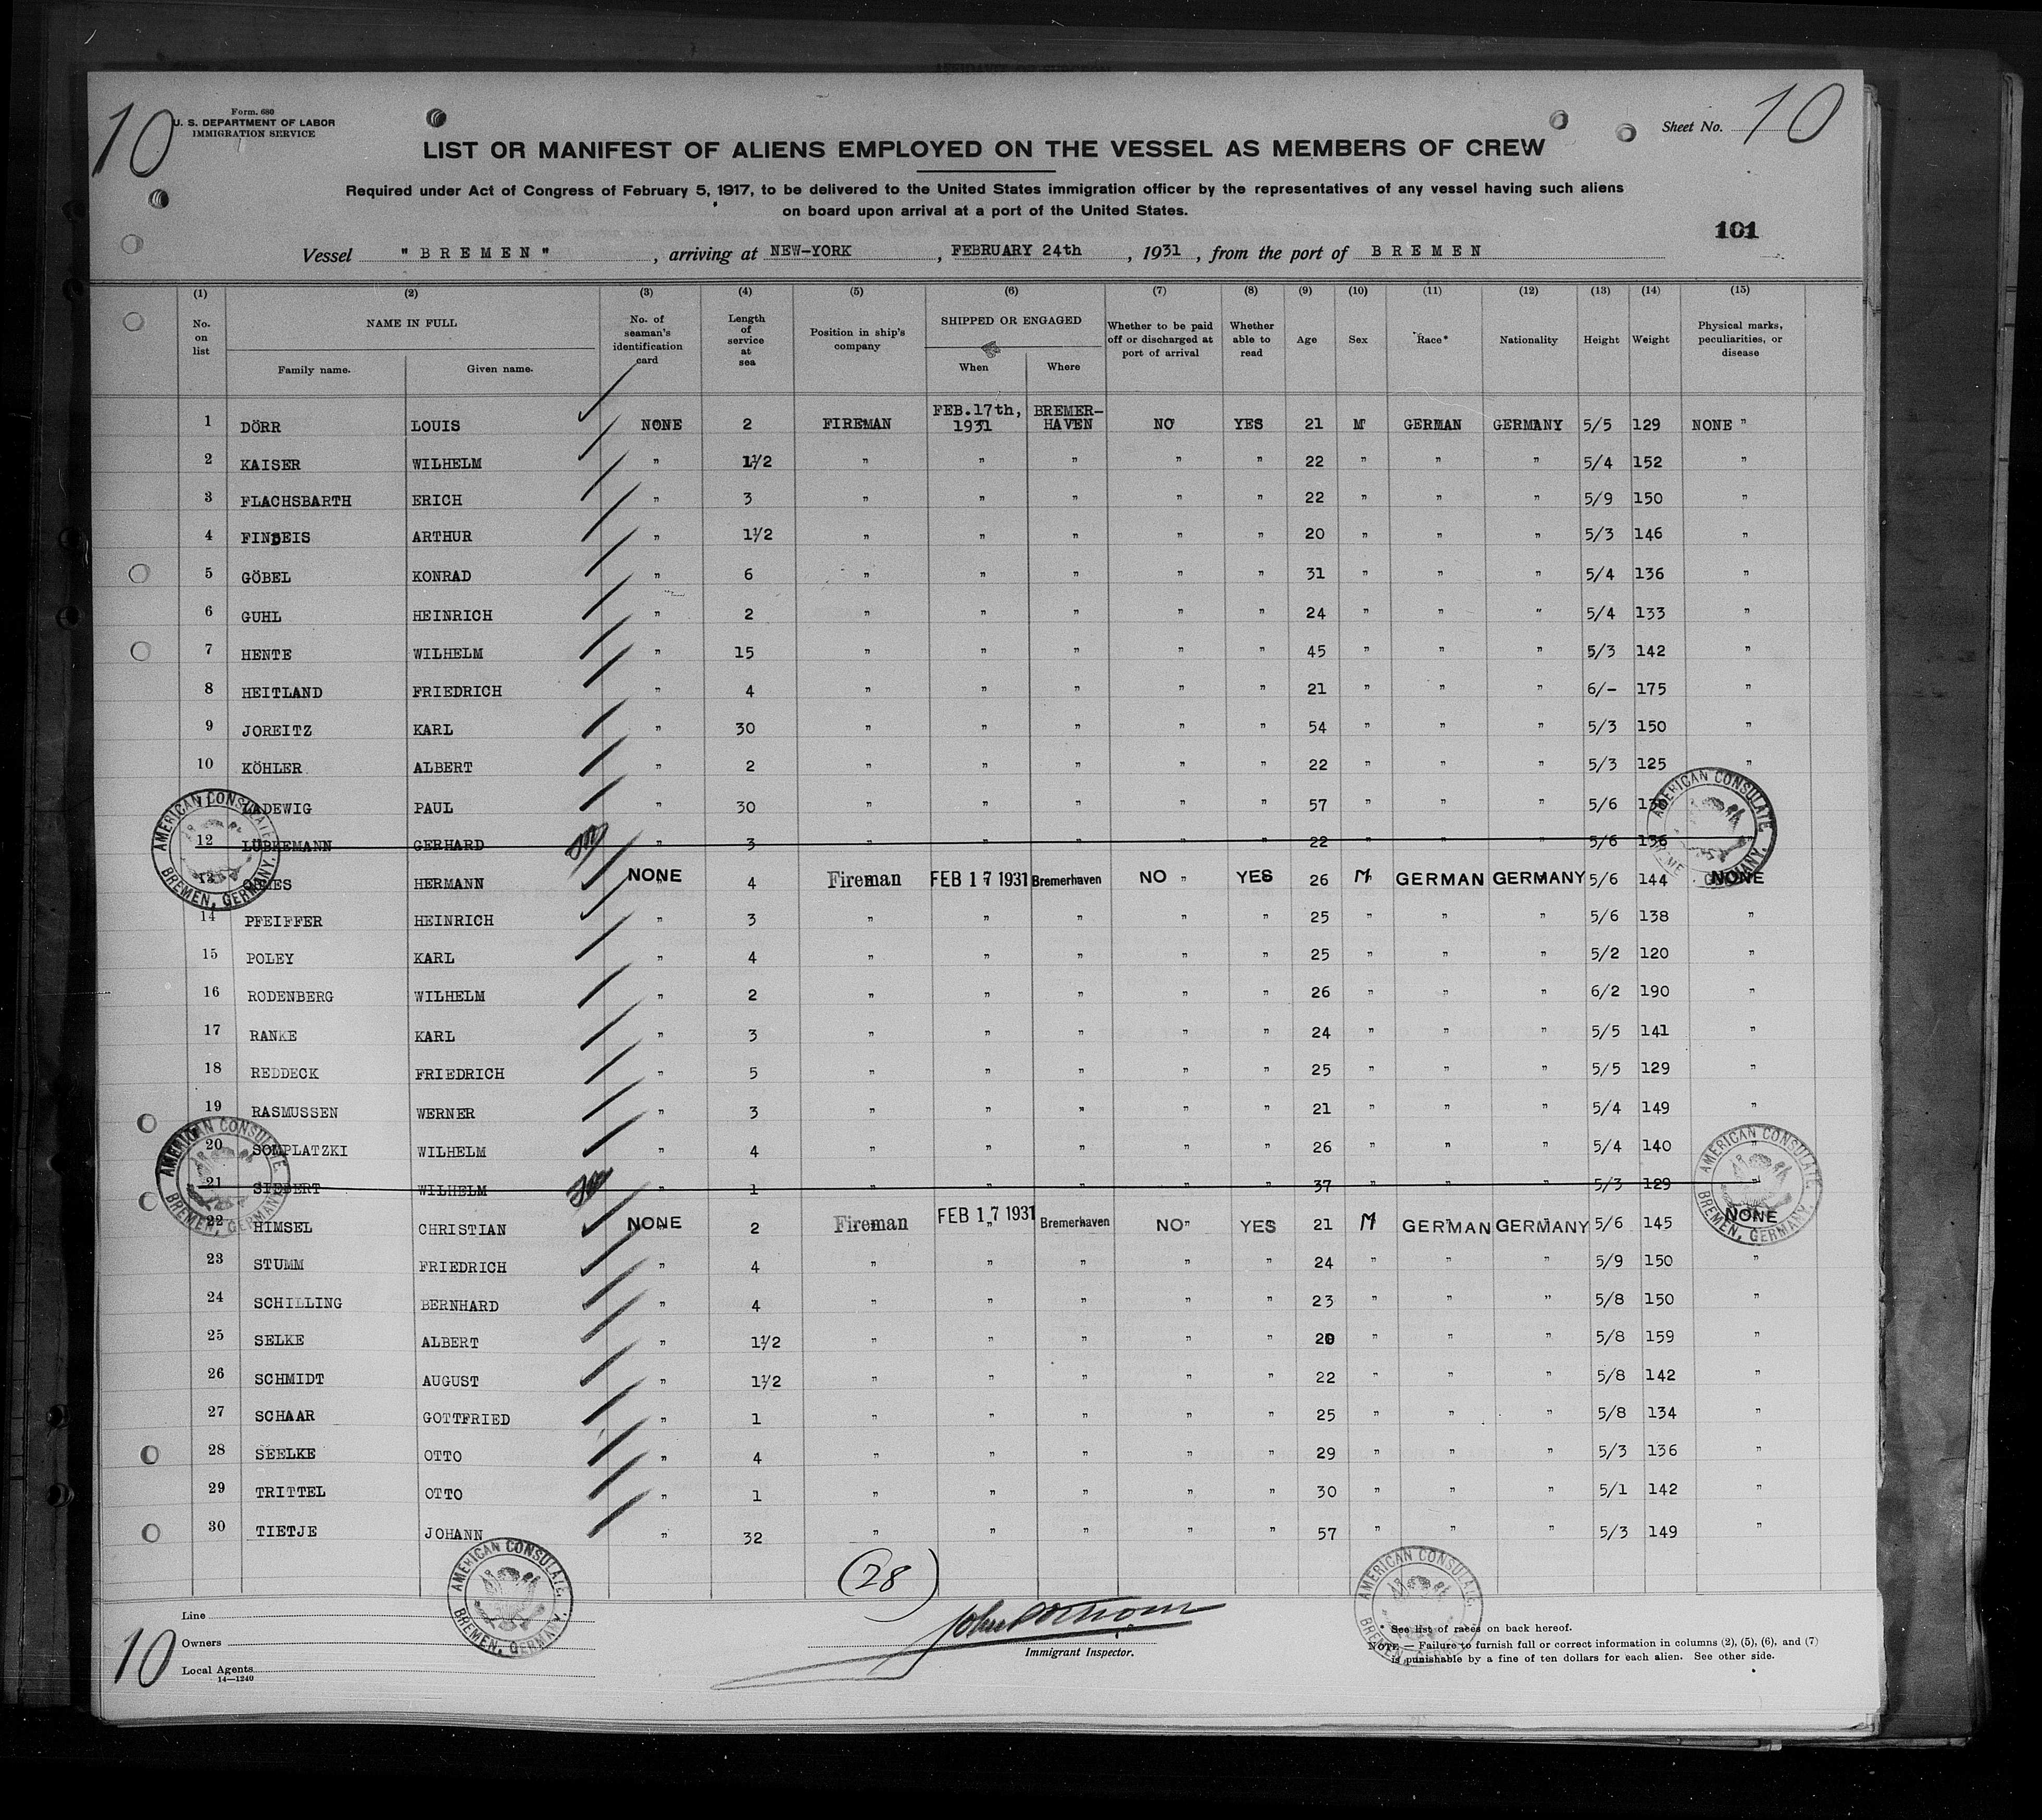 10
Form. 680
U. S. DEPARTMENT OF LABOR
IMMIGRATION SERVICE
Sheet No. 10
LIST OR MANIFEST OF ALIENS EMPLOYED ON THE VESSEL AS MEMBERS OF CREW
Required under Act of Congress of February 5, 1917, to be delivered to the United States immigration officer by the representatives of any vessel having such aliens
on board upon arrival at a port of the United States.
101
Vessel "BREMEN", arriving at NEW-YORK, FEBRUARY 24th, 1931, from the port of BREMEN
(1) (2) (3) (4) (5) (6) (7) (8) (9) (10) (11) (12) (13) (14) (15)
No. on list NAME IN FULL Family name. Given name. No. of seaman's identification card Length of service at sea Position in ship's company SHIPPED OR ENGAGED When Where Whether to be paid off or discharged at port of arrival Whether able to read Age Sex Race* Nationality Height Weight Physical marks, peculiarities, or disease
1 DÖRR LOUIS NONE 2 FIREMAN FEB. 17th, 1931 BREMER-HAVEN NO YES 21 M GERMAN GERMANY 5/5 129 NONE "
2 KAISER WILHELM " 1½ " " " " " 22 " " " 5/4 152 "
3 FLACHSBARTH ERICH " 3 " " " " " 22 " " " 5/9 150 "
4 FINDEIS ARTHUR " 1½ " " " " " 20 " " " 5/3 146 "
5 GÖBEL KONRAD " 6 " " " " " 31 " " " 5/4 136 "
6 GUHL HEINRICH " 2 " " " " " 24 " " " 5/4 133 "
7 HENTE WILHELM " 15 " " " " " 45 " " " 5/3 142 "
8 HEITLAND FRIEDRICH " 4 " " " " " 21 " " " 6/- 175 "
9 JOREITZ KARL " 30 " " " " " 54 " " " 5/3 150 "
10 KÖHLER ALBERT " 2 " " " " " 22 " " " 5/3 125 "
11 LADEWIG PAUL " 30 " " " " " 57 " " " 5/6
12 LÜBKEMANN GERHARD " 3 " " " " " 22 " " " 5/6 136 "
13 HERMANN NONE 4 Fireman FEB 17 1931 Bremerhaven NO " YES 26 M GERMAN GERMANY 5/6 144 NONE
14 PFEIFFER HEINRICH " 3 " " " " " 25 " " " 5/6 138 "
15 POLEY KARL " 4 " " " " " 25 " " " 5/2 120 "
16 RODENBERG WILHELM " 2 " " " " " 26 " " " 6/2 190 "
17 RANKE KARL " 3 " " " " " 24 " " " 5/5 141 "
18 REDDECK FRIEDRICH " 5 " " " " " 25 " " " 5/5 129 "
19 RASMUSSEN WERNER " 3 " " " " " 21 " " " 5/4 149 "
20 SOMPLATZKI WILHELM " 4 " " " " " 26 " " " 5/4 140 "
21 SIEBERT WILHELM " 1 " " " " " 37 " " " 5/3 129 "
22 HIMSEL CHRISTIAN NONE 2 Fireman FEB 17 1931 Bremerhaven NO " YES 21 M GERMAN GERMANY 5/6 145 NONE
23 STUMM FRIEDRICH " 4 " " " " " 24 " " " 5/9 150 "
24 SCHILLING BERNHARD " 4 " " " " " 23 " " " 5/8 150 "
25 SELKE ALBERT " 1½ " " " " " 20 " " " 5/8 159 "
26 SCHMIDT AUGUST " 1½ " " " " " 22 " " " 5/8 142 "
27 SCHAAR GOTTFRIED " 1 " " " " " 25 " " " 5/8 134 "
28 SEELKE OTTO " 4 " " " " " 29 " " " 5/3 136 "
29 TRITTEL OTTO " 1 " " " " " 30 " " " 5/1 142 "
30 TIETJE JOHANN " 32 " " " " " 57 " " " 5/3 149 "
AMERICAN CONSULATE, BREMEN, GERMANY.
AMERICAN CONSULATE, BREMEN, GERMANY.
AMERICAN CONSULATE, BREMEN, GERMANY.
AMERICAN CONSULATE, BREMEN, GERMANY.
AMERICAN CONSULATE, BREMEN, GERMANY.
AMERICAN CONSULATE, BREMEN, GERMANY.
(28)
Line
Owners
Local Agents
14—1240
10
Immigrant Inspector.
* See list of races on back hereof.
NOTE.—Failure to furnish full or correct information in columns (2), (5), (6), and (7)
is punishable by a fine of ten dollars for each alien. See other side.